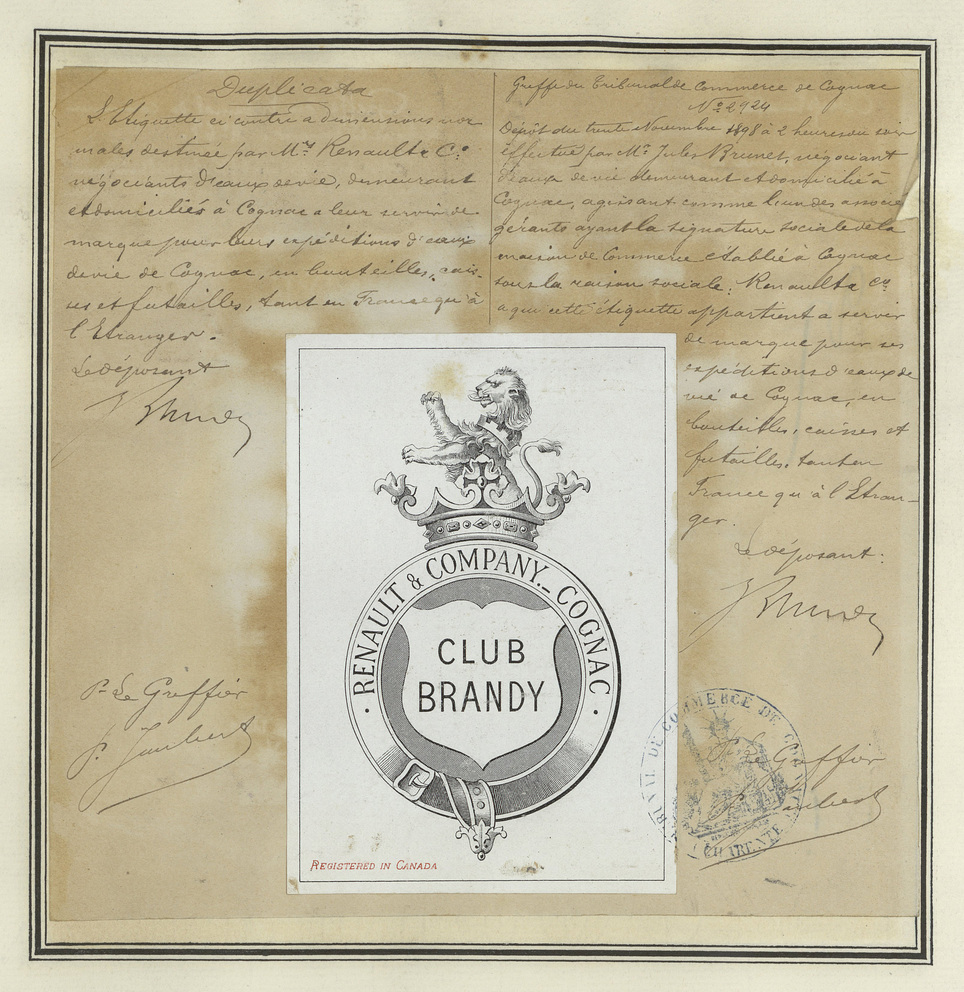 Duplicata
L'Etiquette ci contre a dimensions nor
males destinée par Mrs Renault & Co
négociants d'eaux de vie, demeurant
et domiciliés à Cognac a leur servir de
marque pour leurs expéditions d'eaux
de vie de Cognac, en bouteilles, cais-
ses et futailles, tant en France qu'à
l'Etranger.
Le déposant
J Brunet
Pr Le Greffier
J. Jambert
Greffe du Tribunal de Commerce de Cognac
No 2924
Dépôt du trente Novembre 1898 à 2 heures du soir
effectué par Mr Jules Brunet, négociant
d'eaux de vie demeurant et domicilié à
Cognac, agissant comme l'un des associés
gérants ayant la signature sociale de la
maison de Commerce établie à Cognac
sous la raison sociale: Renault & Co
a qui cette étiquette appartient a servir
de marque pour ses
expéditions d'eaux de
vie de Cognac, en
bouteilles, caisses et
futailles, tant en
France qu'à l'Etran-
ger.
Le déposant.
J Brunet
RENAULT & COMPANY.. COGNAC
CLUB
BRANDY
REGISTERED IN CANADA
Pr Le Greffier
TRIBUNAL DE COMMERCE DE
CHARENTE